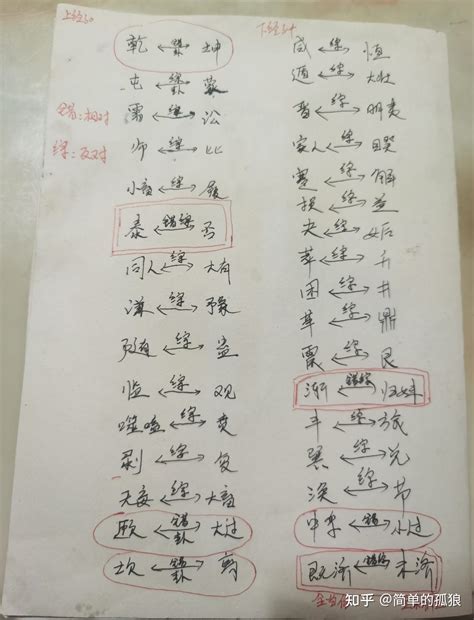 上经30
乾 ←错卦→ 坤
屯 ←综卦→ 蒙
错:相对
需 ←综→ 讼
综:反对
师 ←综→ 比
小畜 ←综→ 履
泰 ←错综→ 否
同人 ←综→ 大有
谦 ←综→ 豫
随 ←综→ 蛊
临 ←综→ 观
噬嗑 ←综→ 贲
剥 ←综→ 复
无妄 ←综→ 大畜
颐 ←错卦→ 大过
坎 ←错卦→ 离
下经34
咸 ←综→ 恒
遁 ←综→ 大壮
晋 ←综→ 明夷
家人 ←综→ 睽
蹇 ←综→ 解
损 ←综→ 益
夬 ←综→ 姤
萃 ←综→ 升
困 ←综→ 井
革 ←综→ 鼎
震 ←综→ 艮
渐 ←错综→ 归妹
丰 ←综→ 旅
巽 ←综→ 兑
涣 ←综→ 节
中孚 ←错→ 小过
既济 ←错综→ 未济
知乎 @简单的孤狼